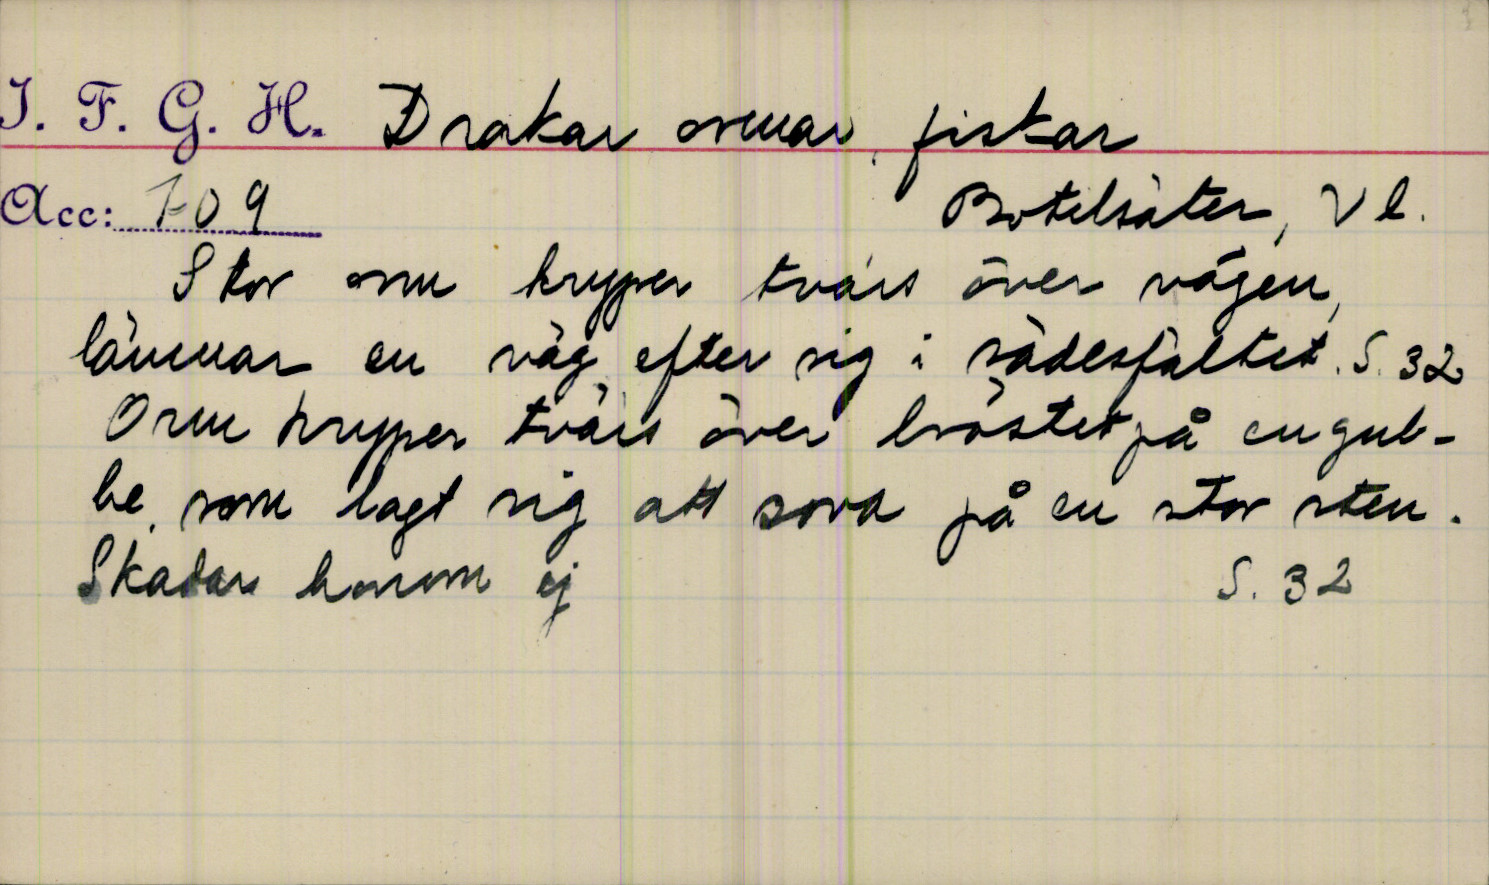 I. F. G. H. Drakar ormar, fiskar
Acc: 709
Botilsäter, Vl.
Stor orm kryper tvärs över vägen,
lämnar en väg efter sig i sädesfältet. S. 32
Orm kryper tvärs över bröstet på en gub-
be, som lagt sig att sova på en stor sten.
Skadar honom ej S. 32